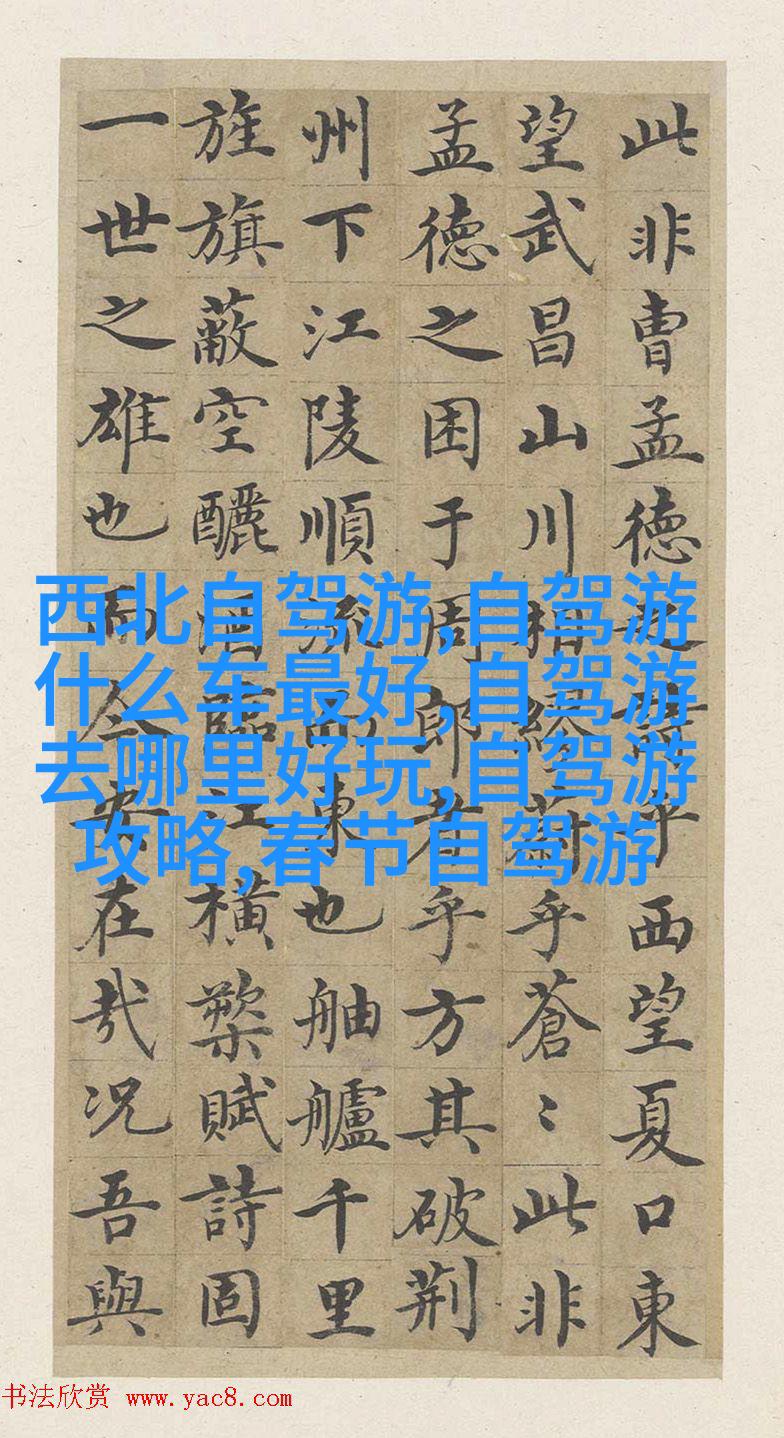 此非曹孟德之詩乎西望夏口東
望武昌山川相繆乎蒼〻此非
孟德之困于周郎者乎方其破荆
州下江陵順流而東也舳艫千里
旌旗蔽空釃酒臨江橫槊賦詩固
一世之雄也而今安在哉况吾與
西北自驾游,自驾游
什么车最好,自驾游
去哪里好玩,自驾游
攻略,春节自驾游
书法欣赏 www.yac8.com